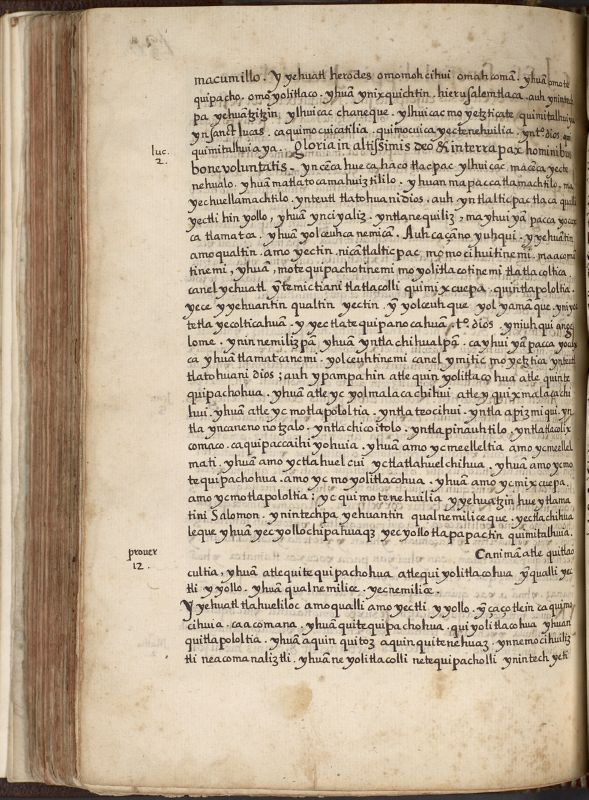 macumillo. Y yehuatl herodes omomohcihui omahcomā. yhuā omote
quipacho. omoyolitlaco. yhuā ynixquichtin hierusalemtlaca. auh ynintech
pa yehuātzitzin, ylhuicac chaneque. ylhuicac moyetzticate quimitalhuiya
yn sanct lucas. ca quimocuicatilia. quimocuica yectenehuilia. yn tº. dios
quimitalhuiaya. Gloria in altissimis deo & in terra pax hominibus
luc. 2.
bone voluntatis. yn cēca hueca, hacotlacpac ylhuicac, macēca yecte
nehualo. yhuā matlatocamahuiztililo. yhuan mapaccatlamachtilo, ma
yechuellamachtilo. ynteutl tlatohuani dios. auh yn tlalticpac tlaca qualli
yectli hin yollo, yhuā yn ciyaliz. yntlanequiliz, mayhuiyā pacca yocox
ca tlamatca. yhuā yolceuhca nemicā. Auh ca çano yuhqui. y yehuātin
amo qualtin. amo yectin. nicā tlalticpac, momocihuitinemi. maacomā
tinemi, yhuā, motequipachotinemi moyolitlacotinemi tlatlacoltica.
canel yehuatl ȳ temictiani tlatlacolli quimixcuepa. quintlapololtia.
yece y yehuantin qualtin yectin. ȳ yolceuhque yolyamāque. yn iyec
tetlayecolticahuā. y yectlatequipanocahuā. tº. dios. yniuhqui ange
lome. yninnemilizpā. yhuā yntlachihualpā. cayhuiyā pacca yocox
ca yhuā tlamatcanemi. yolceuhtinemi canel ymitic moyetztica ynteutl
tlatohuani dios; auh ypampa hin atle quin yolitlacohua atle quinte
quipachohua. yhuā atle yc yolmalacachihui atle yquixmalacachi
hui. yhuā atle yc motlapololtia. yntla teocihui. yntla apizmiqui. yn
tla yncanenonotzalo. yntla chicoitolo. yntla pinauhtilo, yntla tlacolix
comaco. ca quipaccaihiyohuia. yhuā amo yc meelleltia amo yc meellel
mati. yhuā amo yc tlahuelcui yc tlatlahuelchihua. yhuā amo yc mo
tequipachohua. amo yc moyolitlacohua. yhuā amo yc mixcuepa.
amo yc motlapololtia; yc quimotenehuilia y yehuatzin huey tlama
tini Salomon. ynintechpa yehuantin qualnemiliceque. yectlachihua
leque yhuā yec yollochipahuaqz yec yollotlapapachin quimitalhuia.
prouer 12.
Canimā atle quitlao
cultia, yhuā atle quitequipachohua atle qui yolitlacohua ȳ qualli yec
tli y yollo. yhuā qualnemilice. yecnemilice.
Y yehuatl tlahueliloc amo qualli amo yectli y yollo. ȳ çaçotlein ca quimo
cihuia. ca acomana. yhuā quitequipachohua. qui yolitlacohua yhuan
quitlapololtia. yhuā aquin quitoz aquin quitenehuaz. yn nemocihuiliz
tli neacomanaliztli. yhuā neyolitlacolli netequipacholli ynintech yeti